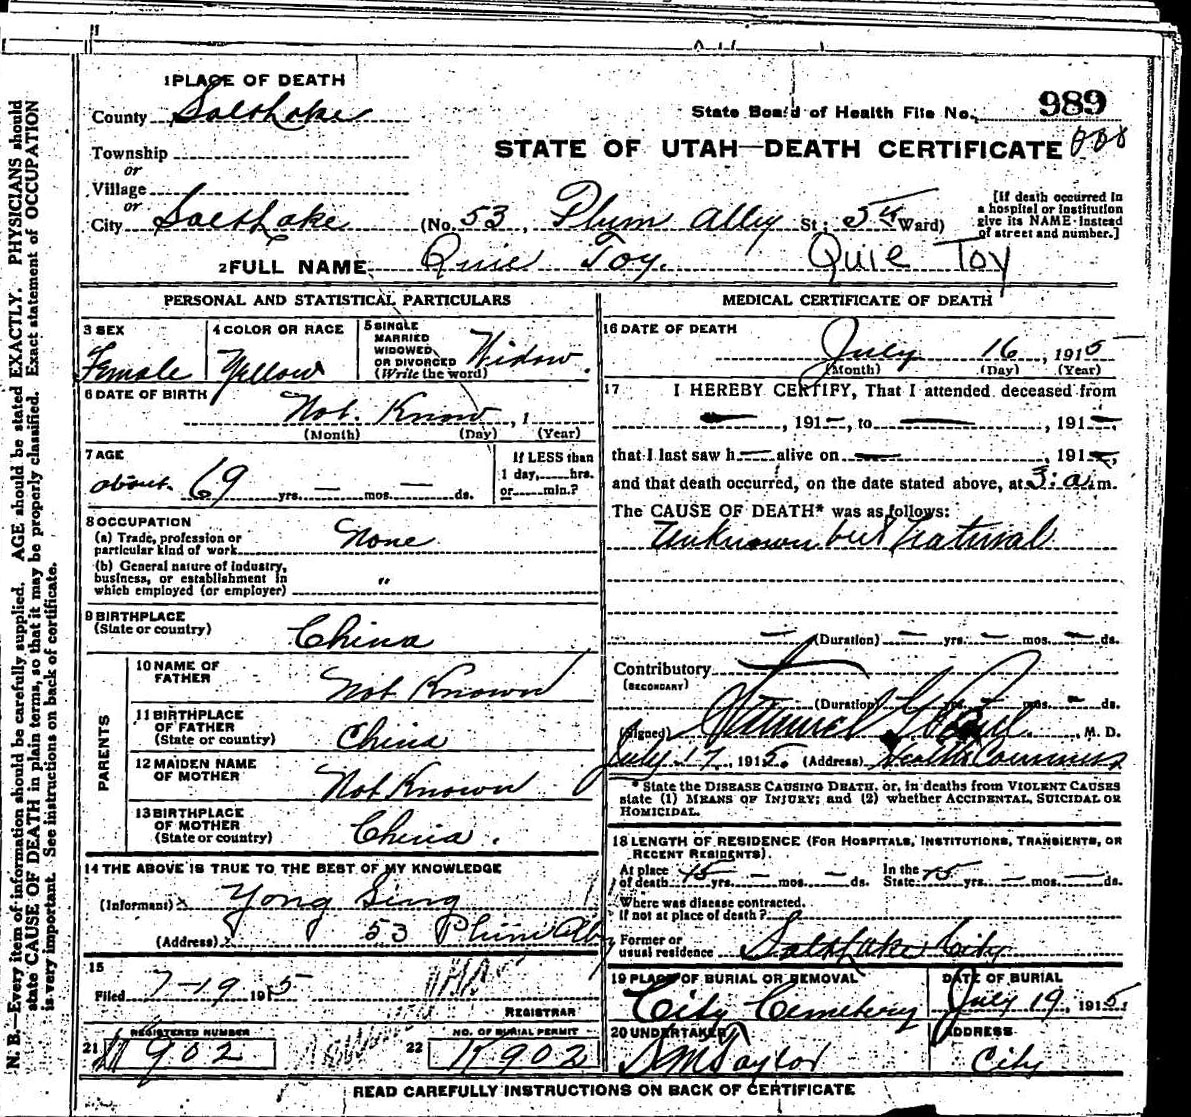 1 PLACE OF DEATH
County Salt Lake
State Board of Health File No. 989
Township
or
Village
or
STATE OF UTAH—DEATH CERTIFICATE
City Salt Lake (No. 53, Plum Alley St; 5th Ward)
[If death occurred in a hospital or institution give its NAME instead of street and number.]
2 FULL NAME Quie Toy. Quie Toy
PERSONAL AND STATISTICAL PARTICULARS
3 SEX
Female
4 COLOR OR RACE
Yellow
5 SINGLE
MARRIED
WIDOWED
OR DIVORCED
(Write the word)
Widow.
6 DATE OF BIRTH
Not Know, 1
(Month) (Day) (Year)
7 AGE
about 69 yrs. — mos. — ds.
If LESS than
1 day,......hrs.
or......min.?
8 OCCUPATION
(a) Trade, profession or
particular kind of work None
(b) General nature of industry,
business, or establishment in
which employed (or employer) "
9 BIRTHPLACE
(State or country) China
PARENTS
10 NAME OF
FATHER Not Known
11 BIRTHPLACE
OF FATHER
(State or country) China
12 MAIDEN NAME
OF MOTHER Not Known
13 BIRTHPLACE
OF MOTHER
(State or country) China.
14 THE ABOVE IS TRUE TO THE BEST OF MY KNOWLEDGE
(Informant) Yong Sing
(Address) 53 Plum Alley
15
Filed 7-19 1915
REGISTRAR
21 REGISTERED NUMBER
902
22 NO. OF BURIAL PERMIT
K902
MEDICAL CERTIFICATE OF DEATH
16 DATE OF DEATH
July 16, 1915
(Month) (Day) (Year)
17 I HEREBY CERTIFY, That I attended deceased from
—, 191—, to —, 191—,
that I last saw h— alive on —, 191—,
and that death occurred, on the date stated above, at 3: a.m.
The CAUSE OF DEATH* was as follows:
Unknown but Natural
— (Duration) — yrs. — mos. — ds.
Contributory
(SECONDARY)
(Duration) yrs. mos. — ds.
(Signed) M. D.
July 17, 1915. (Address) Health Commiss
* State the DISEASE CAUSING DEATH, or, in deaths from VIOLENT CAUSES
state (1) MEANS OF INJURY; and (2) whether ACCIDENTAL, SUICIDAL OR
HOMICIDAL.
18 LENGTH OF RESIDENCE (FOR HOSPITALS, INSTITUTIONS, TRANSIENTS, OR
RECENT RESIDENTS).
At place
of death 15 yrs. — mos. — ds. In the
State 15 yrs. — mos. — ds.
Where was disease contracted.
if not at place of death?
Former or
usual residence Salt Lake City
19 PLACE OF BURIAL OR REMOVAL
City Cemetery
DATE OF BURIAL
July 19, 1915.
20 UNDERTAKER
S M Taylor
ADDRESS
City
READ CAREFULLY INSTRUCTIONS ON BACK OF CERTIFICATE
N. B.—Every item of information should be carefully supplied. AGE should be stated EXACTLY. PHYSICIANS should
state CAUSE OF DEATH in plain terms, so that it may be properly classified. Exact statement of OCCUPATION
is very important. See instructions on back of certificate.